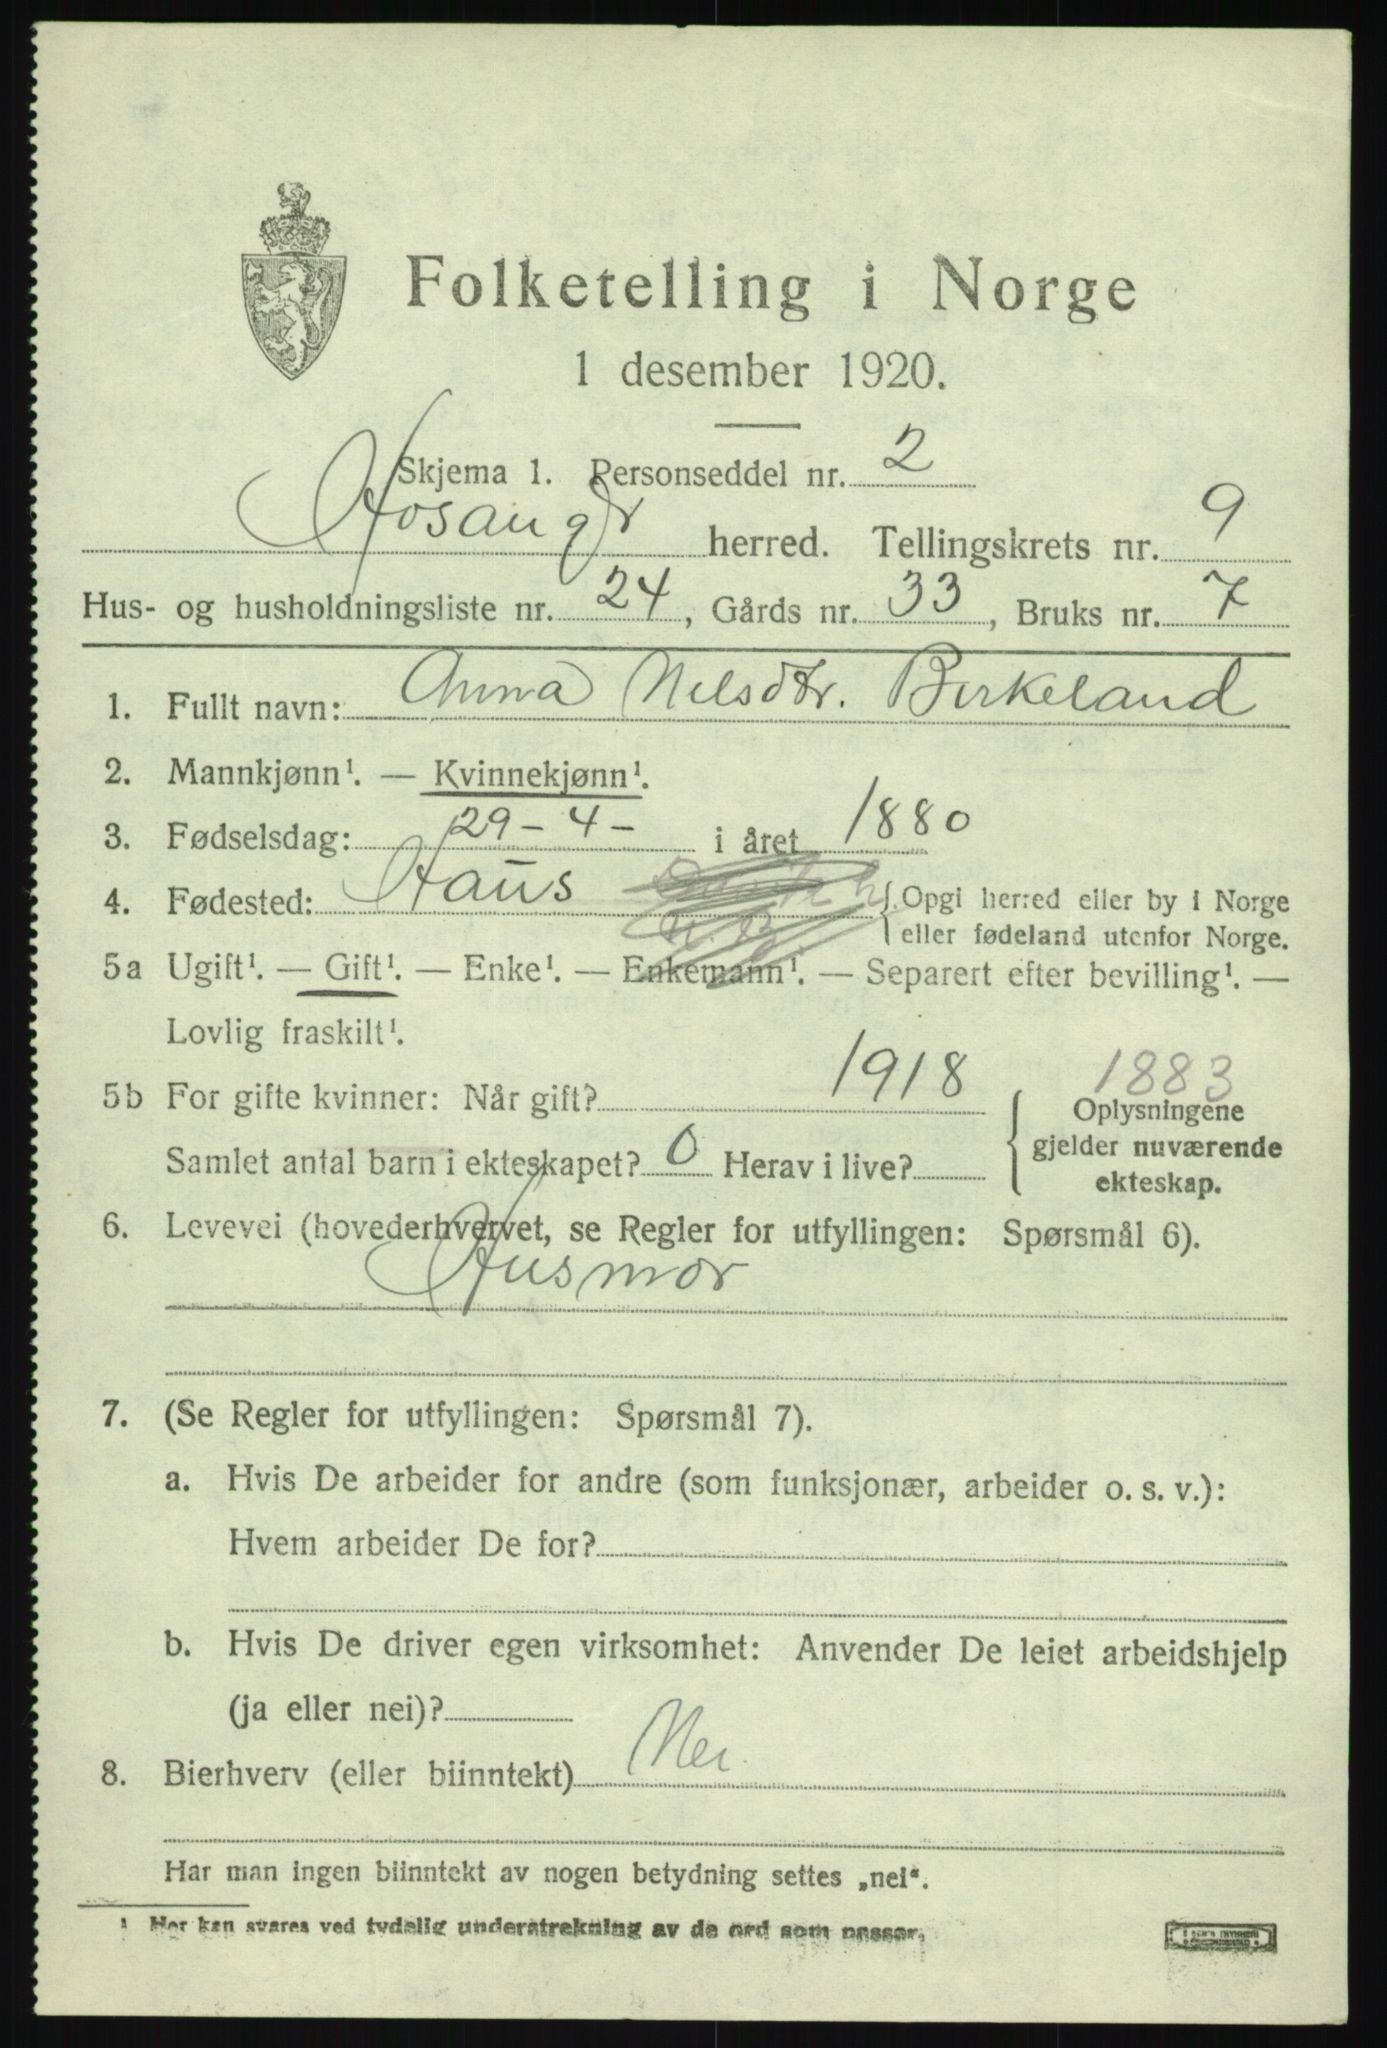 Folketelling i Norge
1 desember 1920.
Skjema 1. Personseddel nr. 2
Hosanger herred. Tellingskrets nr. 9
Hus- og husholdningsliste nr. 24, Gårds nr. 33, Bruks nr. 7
1. Fullt navn: Anna Nilsdtr. Birkeland
2. Mannkjønn¹. — Kvinnekjønn¹.
3. Fødselsdag: 29-4- i året 1880
4. Fødested: Haus {Opgi herred eller by i Norge
eller fødeland utenfor Norge.
5a Ugift¹. — Gift¹. — Enke¹. — Enkemann¹. — Separert efter bevilling¹. —
Lovlig fraskilt¹.
5b For gifte kvinner: Når gift? 1918 1883
Oplysningene
gjelder nuværende
ekteskap.
Samlet antal barn i ekteskapet? 0 Herav i live?
6. Levevei (hovederhvervet, se Regler for utfyllingen: Spørsmål 6).
Husmor
7. (Se Regler for utfyllingen: Spørsmål 7).
a. Hvis De arbeider for andre (som funksjonær, arbeider o. s. v.):
Hvem arbeider De for?
b. Hvis De driver egen virksomhet: Anvender De leiet arbeidshjelp
(ja eller nei)?
8. Bierhverv (eller biinntekt) Nei
Har man ingen biinntekt av nogen betydning settes „nei“.
¹ Her kan svares ved tydelig understrekning av de ord som passer.